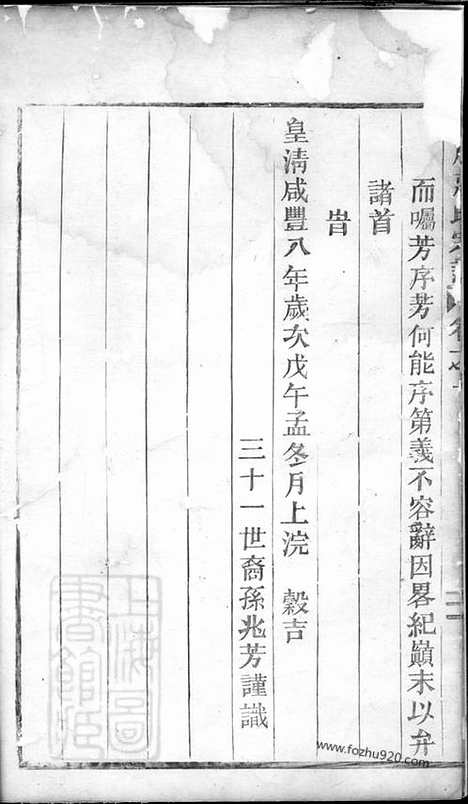 而囑芳序芳何能序第義不容辭因畧紀巔末以弁
諸首
旹
皇清咸豐八年歲次戊午孟冬月上浣　穀吉
三十一世裔孫兆芳謹識
上海圖書館藏
www.fozhu920.com